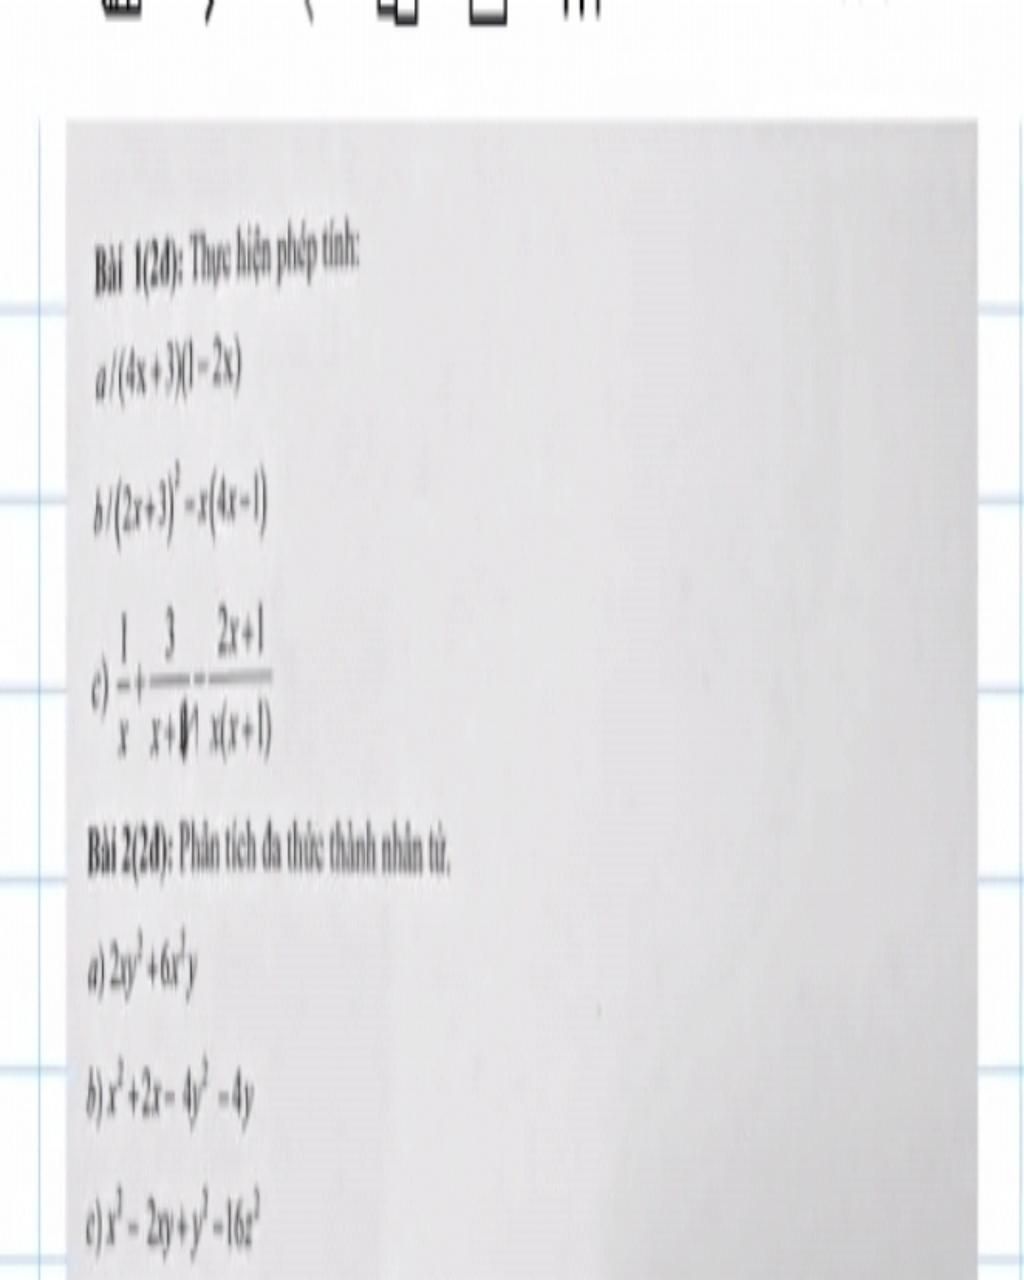 Bài 1(2đ): Thực hiện phép tính:
a/(4x+3)(1-2x)
b/(2x+3)²-x(4x-1)
c) 1/x + 3/(x+1) - (2x+1)/(x(x+1))
Bài 2(2đ): Phân tích đa thức thành nhân tử.
a) 2xy²+6x²y
b) x²+2x-4y²-4y
c) x²-2xy+y²-16z²